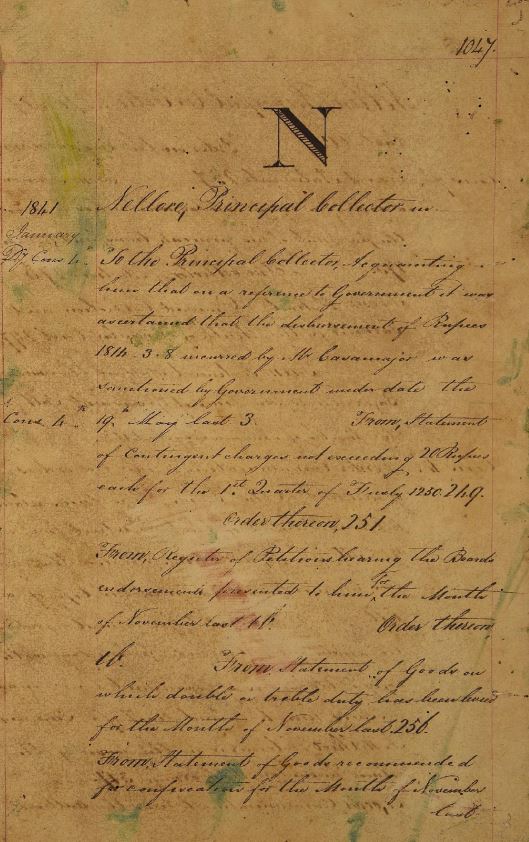 1047.
N
1841
January
Nellore, Principal Collector in
Dy. Cons 4. To the Principal Collector, Acquainting
him that on a reference to Government it was
ascertained that the disbursement of Rupees
1814-3-8 incurred by Mr Casamajor was
sanctioned by Government under date the
Cons. 4th 19th May last 3. From, Statement
of Contingent charges not exceeding 20 Rupees
each for the 1st Quarter of Fusly 1250. 249.
Order thereon, 251
From, Register of Petitions bearing the Boards
endorsements presented to him for the Month
of November last 16. Order thereon
16. From Statement of Goods on
which double or treble duty has been levied
for the Month of November last. 256.
From, Statement of Goods recommended
for confiscation for the Month of November
last.